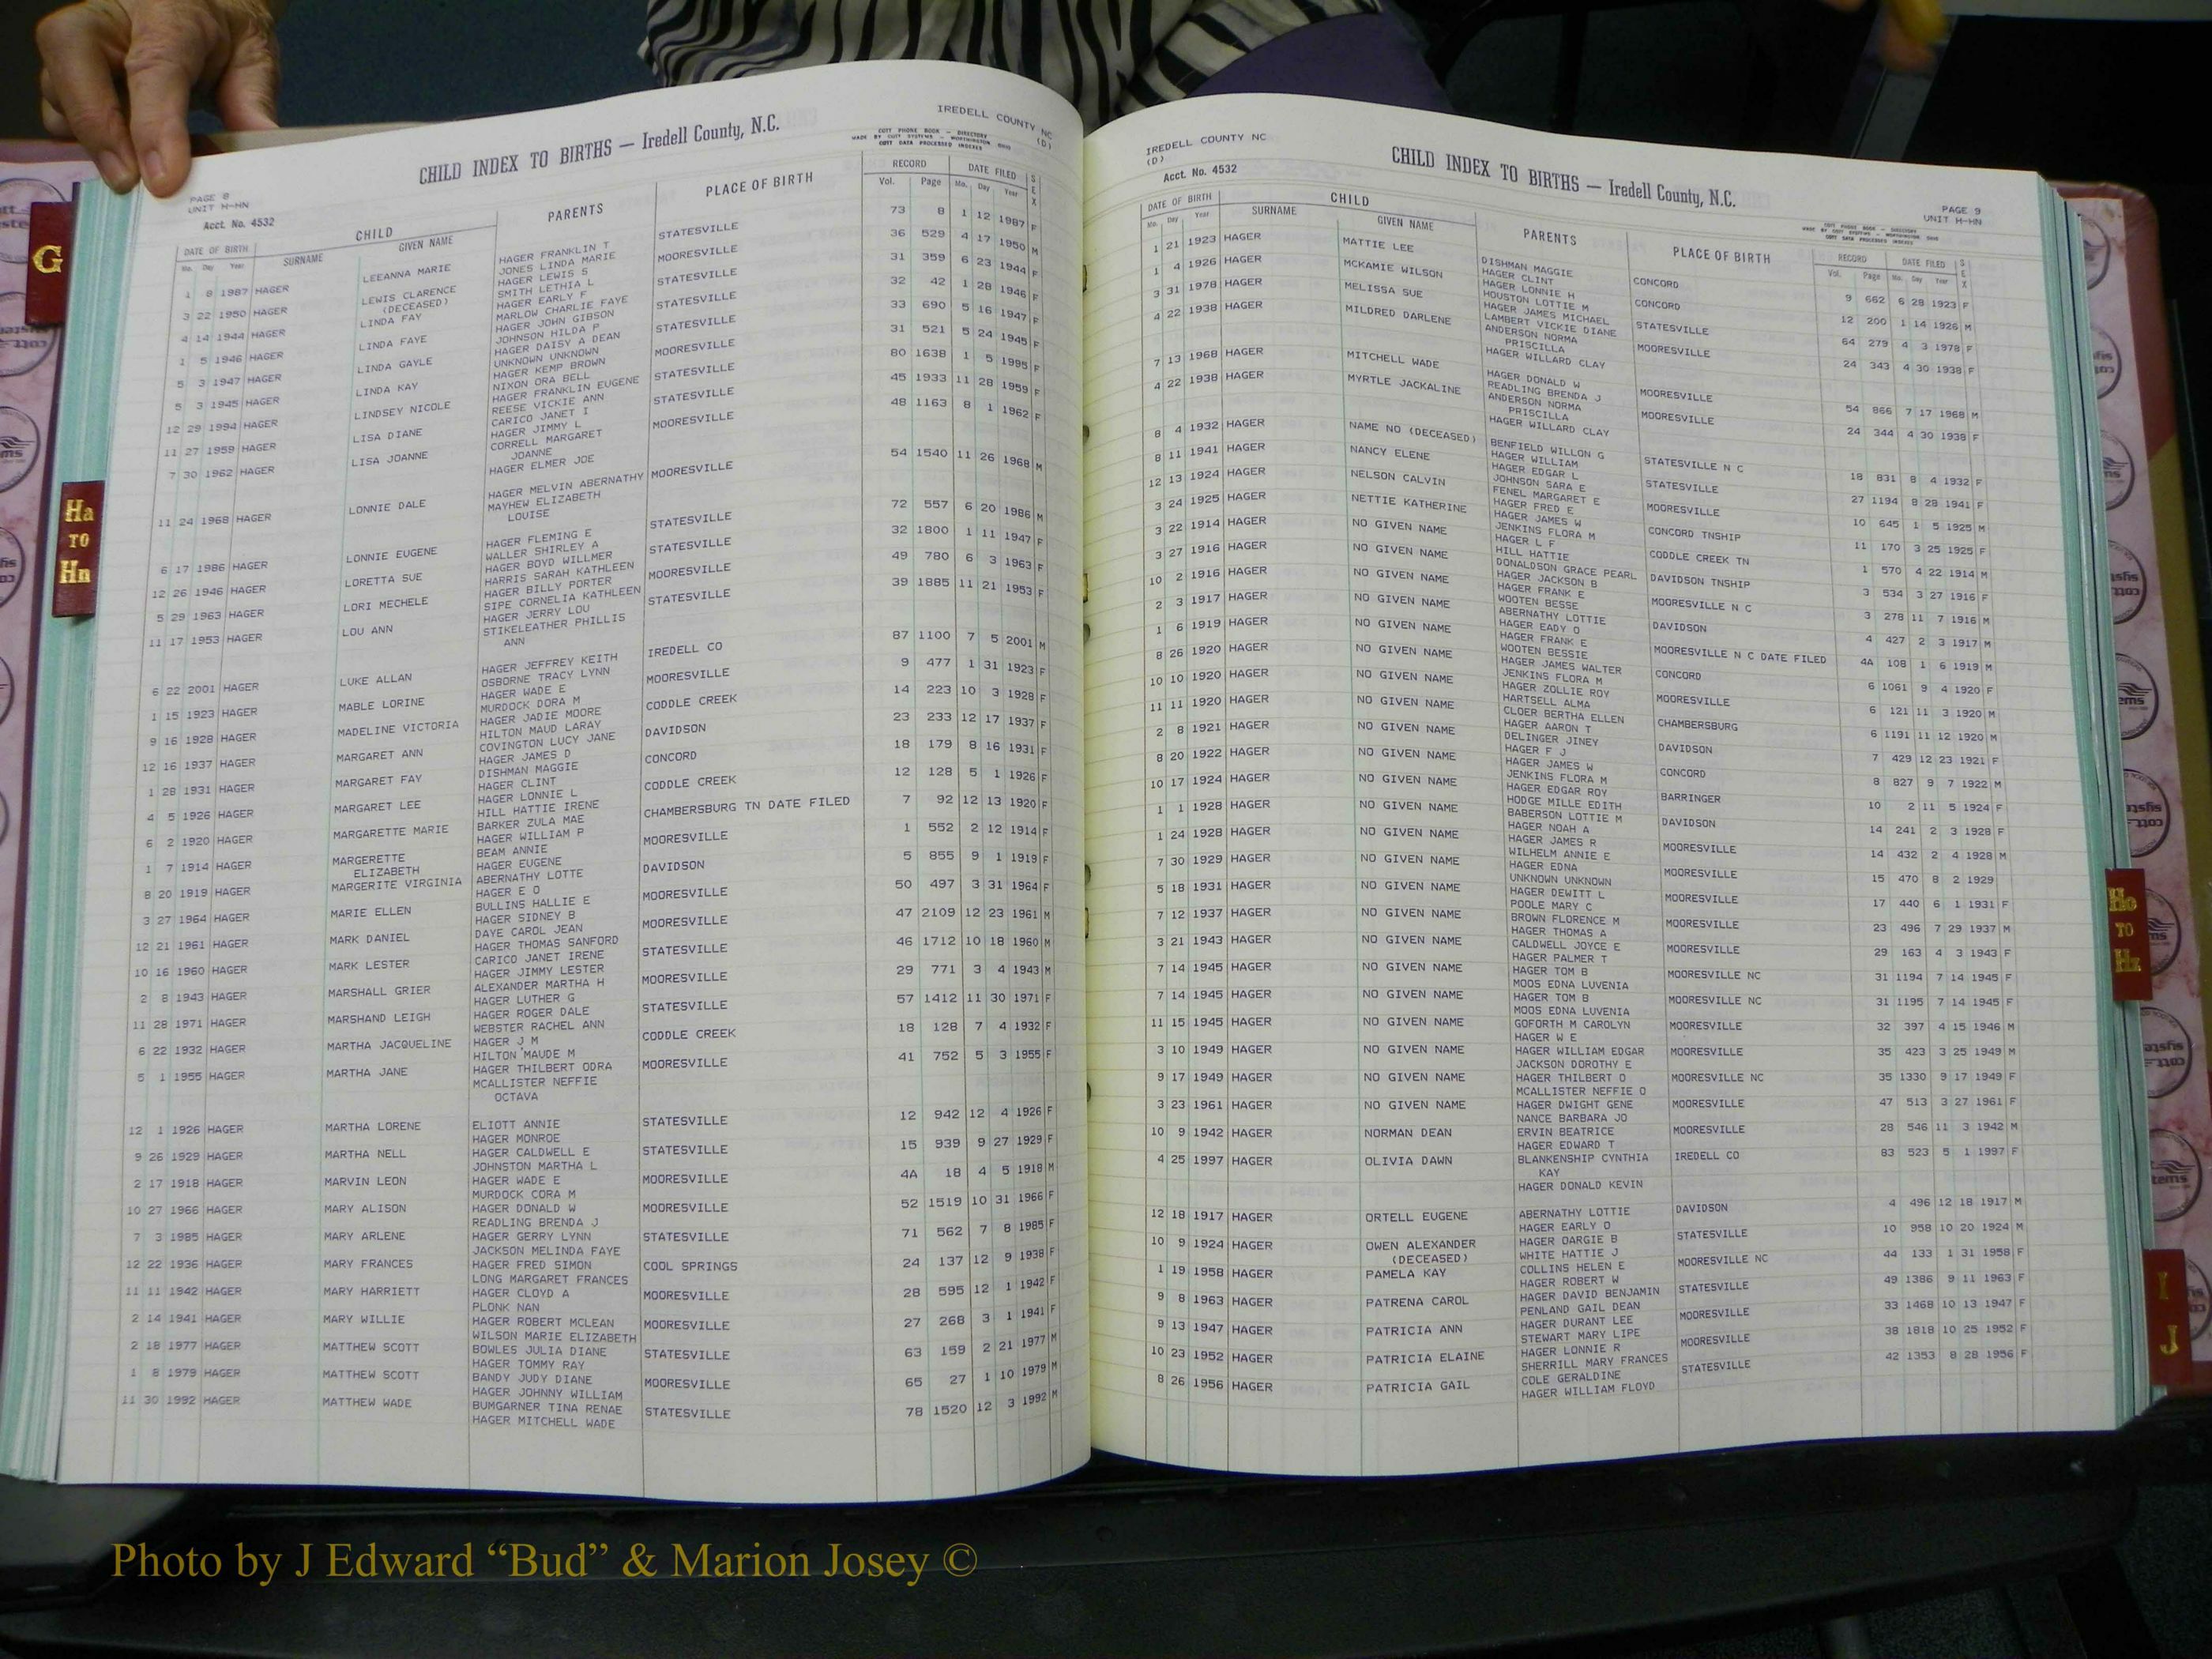 PAGE 8
UNIT H-HN
Acct. No. 4532
CHILD INDEX TO BIRTHS — Iredell County, N.C.
IREDELL COUNTY NC
(D)
COTT PHONE BOOK — DIRECTORY
MADE BY COTT SYSTEMS — WORTHINGTON OHIO
COTT DATA PROCESSED INDEXES
DATE OF BIRTH CHILD PARENTS PLACE OF BIRTH RECORD DATE FILED SEX
Mo. Day Year SURNAME GIVEN NAME Vol. Page Mo. Day Year
1 8 1987 HAGER LEEANNA MARIE HAGER FRANKLIN T STATESVILLE 73 8 1 12 1987 F
JONES LINDA MARIE
3 22 1950 HAGER LEWIS CLARENCE HAGER LEWIS S MOORESVILLE 36 529 4 17 1950 M
(DECEASED) SMITH LETHIA L
4 14 1944 HAGER LINDA FAY HAGER EARLY F STATESVILLE 31 359 6 23 1944 F
MARLOW CHARLIE FAYE
1 5 1946 HAGER LINDA FAYE HAGER JOHN GIBSON STATESVILLE 32 42 1 28 1946 F
JOHNSON HILDA P
5 3 1947 HAGER LINDA GAYLE HAGER DAISY A DEAN STATESVILLE 33 690 5 16 1947 F
UNKNOWN UNKNOWN
5 3 1945 HAGER LINDA KAY HAGER KEMP BROWN MOORESVILLE 31 521 5 24 1945 F
NIXON ORA BELL
12 29 1994 HAGER LINDSEY NICOLE HAGER FRANKLIN EUGENE STATESVILLE 80 1638 1 5 1995 F
REESE VICKIE ANN
11 27 1959 HAGER LISA DIANE CARICO JANET I STATESVILLE 45 1933 11 28 1959 F
HAGER JIMMY L
7 30 1962 HAGER LISA JOANNE CORRELL MARGARET MOORESVILLE 48 1163 8 1 1962 F
JOANNE
HAGER ELMER JOE
11 24 1968 HAGER LONNIE DALE HAGER MELVIN ABERNATHY MOORESVILLE 54 1540 11 26 1968 M
MAYHEW ELIZABETH
LOUISE
6 17 1986 HAGER LONNIE EUGENE HAGER FLEMING E STATESVILLE 72 557 6 20 1986 M
WALLER SHIRLEY A
12 26 1946 HAGER LORETTA SUE HAGER BOYD WILLMER STATESVILLE 32 1800 1 11 1947 F
HARRIS SARAH KATHLEEN
5 29 1963 HAGER LORI MECHELE HAGER BILLY PORTER MOORESVILLE 49 780 6 3 1963 F
SIPE CORNELIA KATHLEEN
11 17 1953 HAGER LOU ANN HAGER JERRY LOU STATESVILLE 39 1885 11 21 1953 F
STIKELEATHER PHILLIS
ANN
6 22 2001 HAGER LUKE ALLAN HAGER JEFFREY KEITH IREDELL CO 87 1100 7 5 2001 M
OSBORNE TRACY LYNN
1 15 1923 HAGER MABLE LORINE HAGER WADE E MOORESVILLE 9 477 1 31 1923 F
MURDOCK DORA M
9 16 1928 HAGER MADELINE VICTORIA HAGER JADIE MOORE CODDLE CREEK 14 223 10 3 1928 F
HILTON MAUD LARAY
12 16 1937 HAGER MARGARET ANN COVINGTON LUCY JANE DAVIDSON 23 233 12 17 1937 F
HAGER JAMES D
1 28 1931 HAGER MARGARET FAY DISHMAN MAGGIE CONCORD 18 179 8 16 1931 F
HAGER CLINT
4 5 1926 HAGER MARGARET LEE HAGER LONNIE L CODDLE CREEK 12 128 5 1 1926 F
HILL HATTIE IRENE
6 2 1920 HAGER MARGARETTE MARIE BARKER ZULA MAE CHAMBERSBURG TN DATE FILED 7 92 12 13 1920 F
HAGER WILLIAM P
1 7 1914 HAGER MARGERETTE BEAM ANNIE MOORESVILLE 1 552 2 12 1914 F
ELIZABETH HAGER EUGENE
8 20 1919 HAGER MARGERITE VIRGINIA ABERNATHY LOTTE DAVIDSON 5 855 9 1 1919 F
HAGER E O
3 27 1964 HAGER MARIE ELLEN BULLINS HALLIE E MOORESVILLE 50 497 3 31 1964 F
HAGER SIDNEY B
12 21 1961 HAGER MARK DANIEL DAYE CAROL JEAN MOORESVILLE 47 2109 12 23 1961 M
HAGER THOMAS SANFORD
10 16 1960 HAGER MARK LESTER CARICO JANET IRENE STATESVILLE 46 1712 10 18 1960 M
HAGER JIMMY LESTER
2 8 1943 HAGER MARSHALL GRIER ALEXANDER MARTHA H MOORESVILLE 29 771 3 4 1943 M
HAGER LUTHER G
11 28 1971 HAGER MARSHAND LEIGH HAGER ROGER DALE STATESVILLE 57 1412 11 30 1971 F
WEBSTER RACHEL ANN
6 22 1932 HAGER MARTHA JACQUELINE HAGER J M CODDLE CREEK 18 128 7 4 1932 F
HILTON MAUDE M
5 1 1955 HAGER MARTHA JANE HAGER THILBERT ODRA MOORESVILLE 41 752 5 3 1955 F
MCALLISTER NEFFIE
OCTAVA
12 1 1926 HAGER MARTHA LORENE ELIOTT ANNIE STATESVILLE 12 942 12 4 1926 F
HAGER MONROE
9 26 1929 HAGER MARTHA NELL HAGER CALDWELL E STATESVILLE 15 939 9 27 1929 F
JOHNSTON MARTHA L
2 17 1918 HAGER MARVIN LEON HAGER WADE E MOORESVILLE 4A 18 4 5 1918 M
MURDOCK CORA M
10 27 1966 HAGER MARY ALISON HAGER DONALD W MOORESVILLE 52 1519 10 31 1966 F
READLING BRENDA J
7 3 1985 HAGER MARY ARLENE HAGER GERRY LYNN STATESVILLE 71 562 7 8 1985 F
JACKSON MELINDA FAYE
12 22 1936 HAGER MARY FRANCES HAGER FRED SIMON COOL SPRINGS 24 137 12 9 1938 F
LONG MARGARET FRANCES
11 11 1942 HAGER MARY HARRIETT HAGER CLOYD A MOORESVILLE 28 595 12 1 1942 F
PLONK NAN
2 14 1941 HAGER MARY WILLIE HAGER ROBERT MCLEAN MOORESVILLE 27 268 3 1 1941 F
WILSON MARIE ELIZABETH
2 18 1977 HAGER MATTHEW SCOTT BOWLES JULIA DIANE STATESVILLE 63 159 2 21 1977 M
HAGER TOMMY RAY
1 8 1979 HAGER MATTHEW SCOTT BANDY JUDY DIANE MOORESVILLE 65 27 1 10 1979 M
HAGER JOHNNY WILLIAM
11 30 1992 HAGER MATTHEW WADE BUMGARNER TINA RENAE STATESVILLE 78 1520 12 3 1992 M
HAGER MITCHELL WADE
IREDELL COUNTY NC
(D)
Acct. No. 4532
CHILD INDEX TO BIRTHS — Iredell County, N.C.
PAGE 9
UNIT H-HN
COTT PHONE BOOK — DIRECTORY
MADE BY COTT SYSTEMS — WORTHINGTON OHIO
COTT DATA PROCESSED INDEXES
DATE OF BIRTH CHILD PARENTS PLACE OF BIRTH RECORD DATE FILED SEX
Mo. Day Year SURNAME GIVEN NAME Vol. Page Mo. Day Year
1 21 1923 HAGER MATTIE LEE DISHMAN MAGGIE CONCORD 9 662 6 28 1923 F
HAGER CLINT
1 4 1926 HAGER MCKAMIE WILSON HAGER LONNIE H CONCORD 12 200 1 14 1926 M
HOUSTON LOTTIE M
3 31 1978 HAGER MELISSA SUE HAGER JAMES MICHAEL STATESVILLE 64 279 4 3 1978 F
LAMBERT VICKIE DIANE
4 22 1938 HAGER MILDRED DARLENE ANDERSON NORMA MOORESVILLE 24 343 4 30 1938 F
PRISCILLA
HAGER WILLARD CLAY
7 13 1968 HAGER MITCHELL WADE HAGER DONALD W MOORESVILLE 54 866 7 17 1968 M
READLING BRENDA J
4 22 1938 HAGER MYRTLE JACKALINE ANDERSON NORMA MOORESVILLE 24 344 4 30 1938 F
PRISCILLA
HAGER WILLARD CLAY
8 4 1932 HAGER NAME NO (DECEASED) BENFIELD WILLON G STATESVILLE N C 18 831 8 4 1932 F
HAGER WILLIAM
8 11 1941 HAGER NANCY ELENE HAGER EDGAR L STATESVILLE 27 1194 8 28 1941 F
JOHNSON SARA E
12 13 1924 HAGER NELSON CALVIN FENEL MARGARET E MOORESVILLE 10 645 1 5 1925 M
HAGER FRED E
3 24 1925 HAGER NETTIE KATHERINE HAGER JAMES W CONCORD TNSHIP 11 170 3 25 1925 F
JENKINS FLORA M
3 22 1914 HAGER NO GIVEN NAME HAGER L F CODDLE CREEK TN 1 570 4 22 1914 M
HILL HATTIE
3 27 1916 HAGER NO GIVEN NAME DONALDSON GRACE PEARL DAVIDSON TNSHIP 3 534 3 27 1916 F
HAGER JACKSON B
10 2 1916 HAGER NO GIVEN NAME HAGER FRANK E MOORESVILLE N C 3 278 11 7 1916 M
WOOTEN BESSE
2 3 1917 HAGER NO GIVEN NAME ABERNATHY LOTTIE DAVIDSON 4 427 2 3 1917 M
HAGER EADY O
1 6 1919 HAGER NO GIVEN NAME HAGER FRANK E MOORESVILLE N C DATE FILED 4A 108 1 6 1919 M
WOOTEN BESSIE
8 26 1920 HAGER NO GIVEN NAME HAGER JAMES WALTER CONCORD 6 1061 9 4 1920 F
JENKINS FLORA M
10 10 1920 HAGER NO GIVEN NAME HAGER ZOLLIE ROY MOORESVILLE 6 121 11 3 1920 M
HARTSELL ALMA
11 11 1920 HAGER NO GIVEN NAME CLOER BERTHA ELLEN CHAMBERSBURG 6 1191 11 12 1920 M
HAGER AARON T
2 8 1921 HAGER NO GIVEN NAME DELINGER JINEY DAVIDSON 7 429 12 23 1921 F
HAGER F J
8 20 1922 HAGER NO GIVEN NAME HAGER JAMES W CONCORD 8 827 9 7 1922 M
JENKINS FLORA M
10 17 1924 HAGER NO GIVEN NAME HAGER EDGAR ROY BARRINGER 10 2 11 5 1924 F
HODGE MILLE EDITH
1 1 1928 HAGER NO GIVEN NAME BABERSON LOTTIE M DAVIDSON 14 241 2 3 1928 F
HAGER NOAH A
1 24 1928 HAGER NO GIVEN NAME HAGER JAMES R MOORESVILLE 14 432 2 4 1928 M
WILHELM ANNIE E
7 30 1929 HAGER NO GIVEN NAME HAGER EDNA MOORESVILLE 15 470 8 2 1929
UNKNOWN UNKNOWN
5 18 1931 HAGER NO GIVEN NAME HAGER DEWITT L MOORESVILLE 17 440 6 1 1931 F
POOLE MARY C
7 12 1937 HAGER NO GIVEN NAME BROWN FLORENCE M MOORESVILLE 23 496 7 29 1937 M
HAGER THOMAS A
3 21 1943 HAGER NO GIVEN NAME CALDWELL JOYCE E MOORESVILLE 29 163 4 3 1943 F
HAGER PALMER T
7 14 1945 HAGER NO GIVEN NAME HAGER TOM B MOORESVILLE NC 31 1194 7 14 1945 F
MOOS EDNA LUVENIA
7 14 1945 HAGER NO GIVEN NAME HAGER TOM B MOORESVILLE NC 31 1195 7 14 1945 F
MOOS EDNA LUVENIA
11 15 1945 HAGER NO GIVEN NAME GOFORTH M CAROLYN MOORESVILLE 32 397 4 15 1946 M
HAGER W E
3 10 1949 HAGER NO GIVEN NAME HAGER WILLIAM EDGAR MOORESVILLE 35 423 3 25 1949 M
JACKSON DOROTHY E
9 17 1949 HAGER NO GIVEN NAME HAGER THILBERT O MOORESVILLE NC 35 1330 9 17 1949 F
MCALLISTER NEFFIE O
3 23 1961 HAGER NO GIVEN NAME HAGER DWIGHT GENE MOORESVILLE 47 513 3 27 1961 F
NANCE BARBARA JO
10 9 1942 HAGER NORMAN DEAN ERVIN BEATRICE MOORESVILLE 28 546 11 3 1942 M
HAGER EDWARD T
4 25 1997 HAGER OLIVIA DAWN BLANKENSHIP CYNTHIA IREDELL CO 83 523 5 1 1997 F
KAY
HAGER DONALD KEVIN
12 18 1917 HAGER ORTELL EUGENE ABERNATHY LOTTIE DAVIDSON 4 496 12 18 1917 M
HAGER EARLY O
10 9 1924 HAGER OWEN ALEXANDER HAGER OARGIE B STATESVILLE 10 958 10 20 1924 M
(DECEASED) WHITE HATTIE J
1 19 1958 HAGER PAMELA KAY COLLINS HELEN E MOORESVILLE NC 44 133 1 31 1958 F
HAGER ROBERT W
9 8 1963 HAGER PATRENA CAROL HAGER DAVID BENJAMIN STATESVILLE 49 1386 9 11 1963 F
PENLAND GAIL DEAN
9 13 1947 HAGER PATRICIA ANN HAGER DURANT LEE MOORESVILLE 33 1468 10 13 1947 F
STEWART MARY LIPE
10 23 1952 HAGER PATRICIA ELAINE HAGER LONNIE R MOORESVILLE 38 1818 10 25 1952 F
SHERRILL MARY FRANCES
8 26 1956 HAGER PATRICIA GAIL COLE GERALDINE STATESVILLE 42 1353 8 28 1956 F
HAGER WILLIAM FLOYD
G
Ha
TO
Hn
Ho
TO
Hz
I
J
Photo by J Edward “Bud” & Marion Josey ©